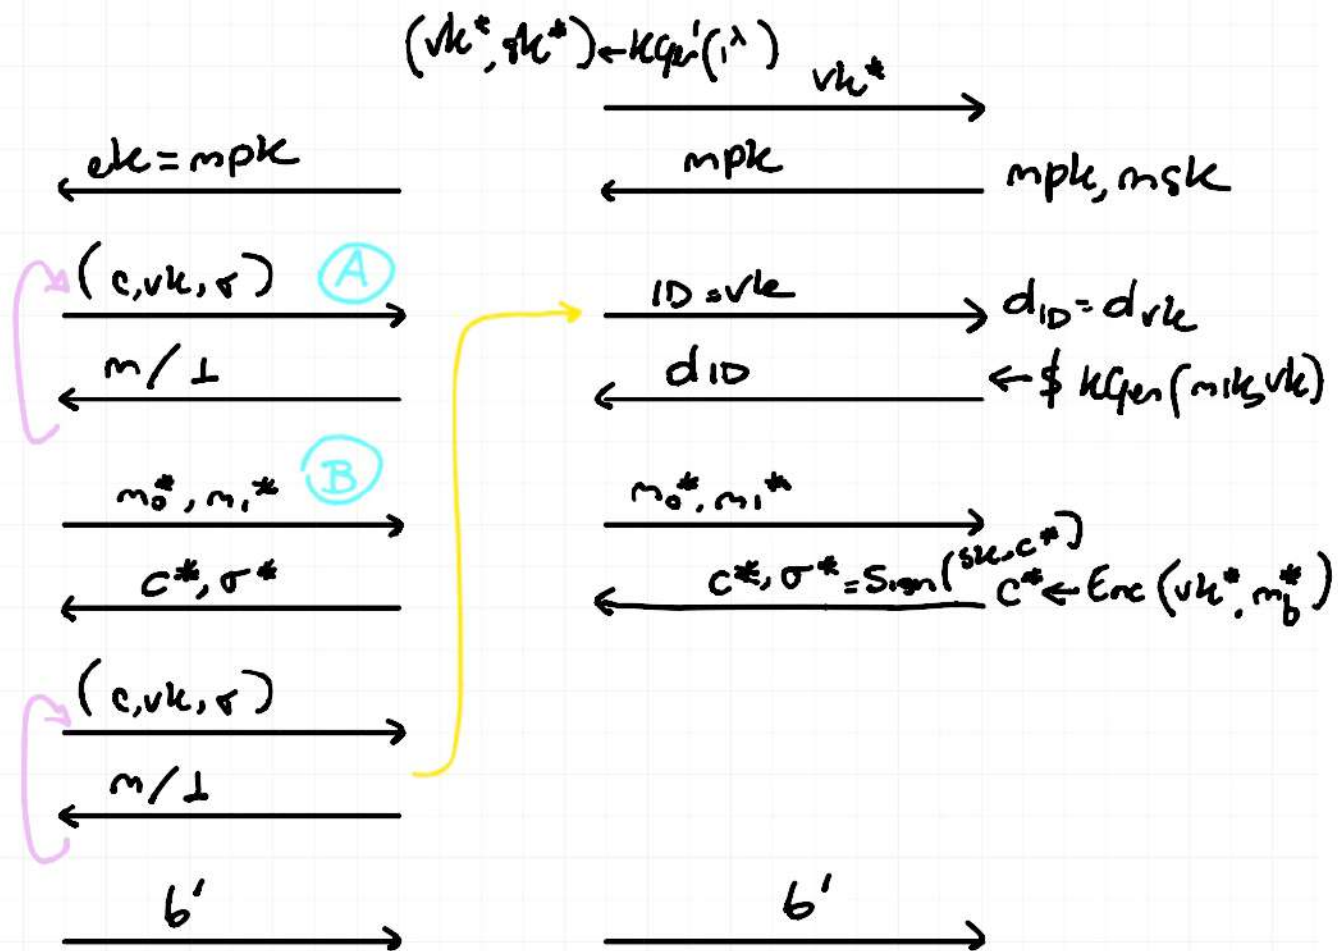 (vk*, sk*) ← KGen'(1^λ)
vk*
ek = mpk
mpk
mpk, msk
(c, vk, σ) A
ID = vk
d_ID = d_vk
m/⊥
d_ID
←$ KGen(msk, vk)
m_0*, m_1* B
m_0*, m_1*
c*, σ*
c*, σ* = Sign(sk, c*)
c* ← Enc(vk*, m_b*)
(c, vk, σ)
m/⊥
b'
b'